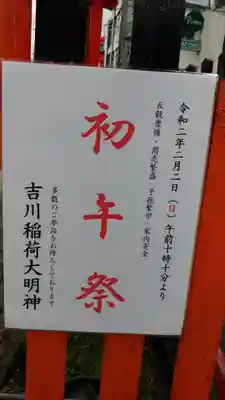 令和二年二月二日(日)午前十時十分より
五穀豊穣・商売繁盛・子孫繁栄・家内安全
初午祭
多数のご参詣をお待ちしております
吉川稲荷大明神